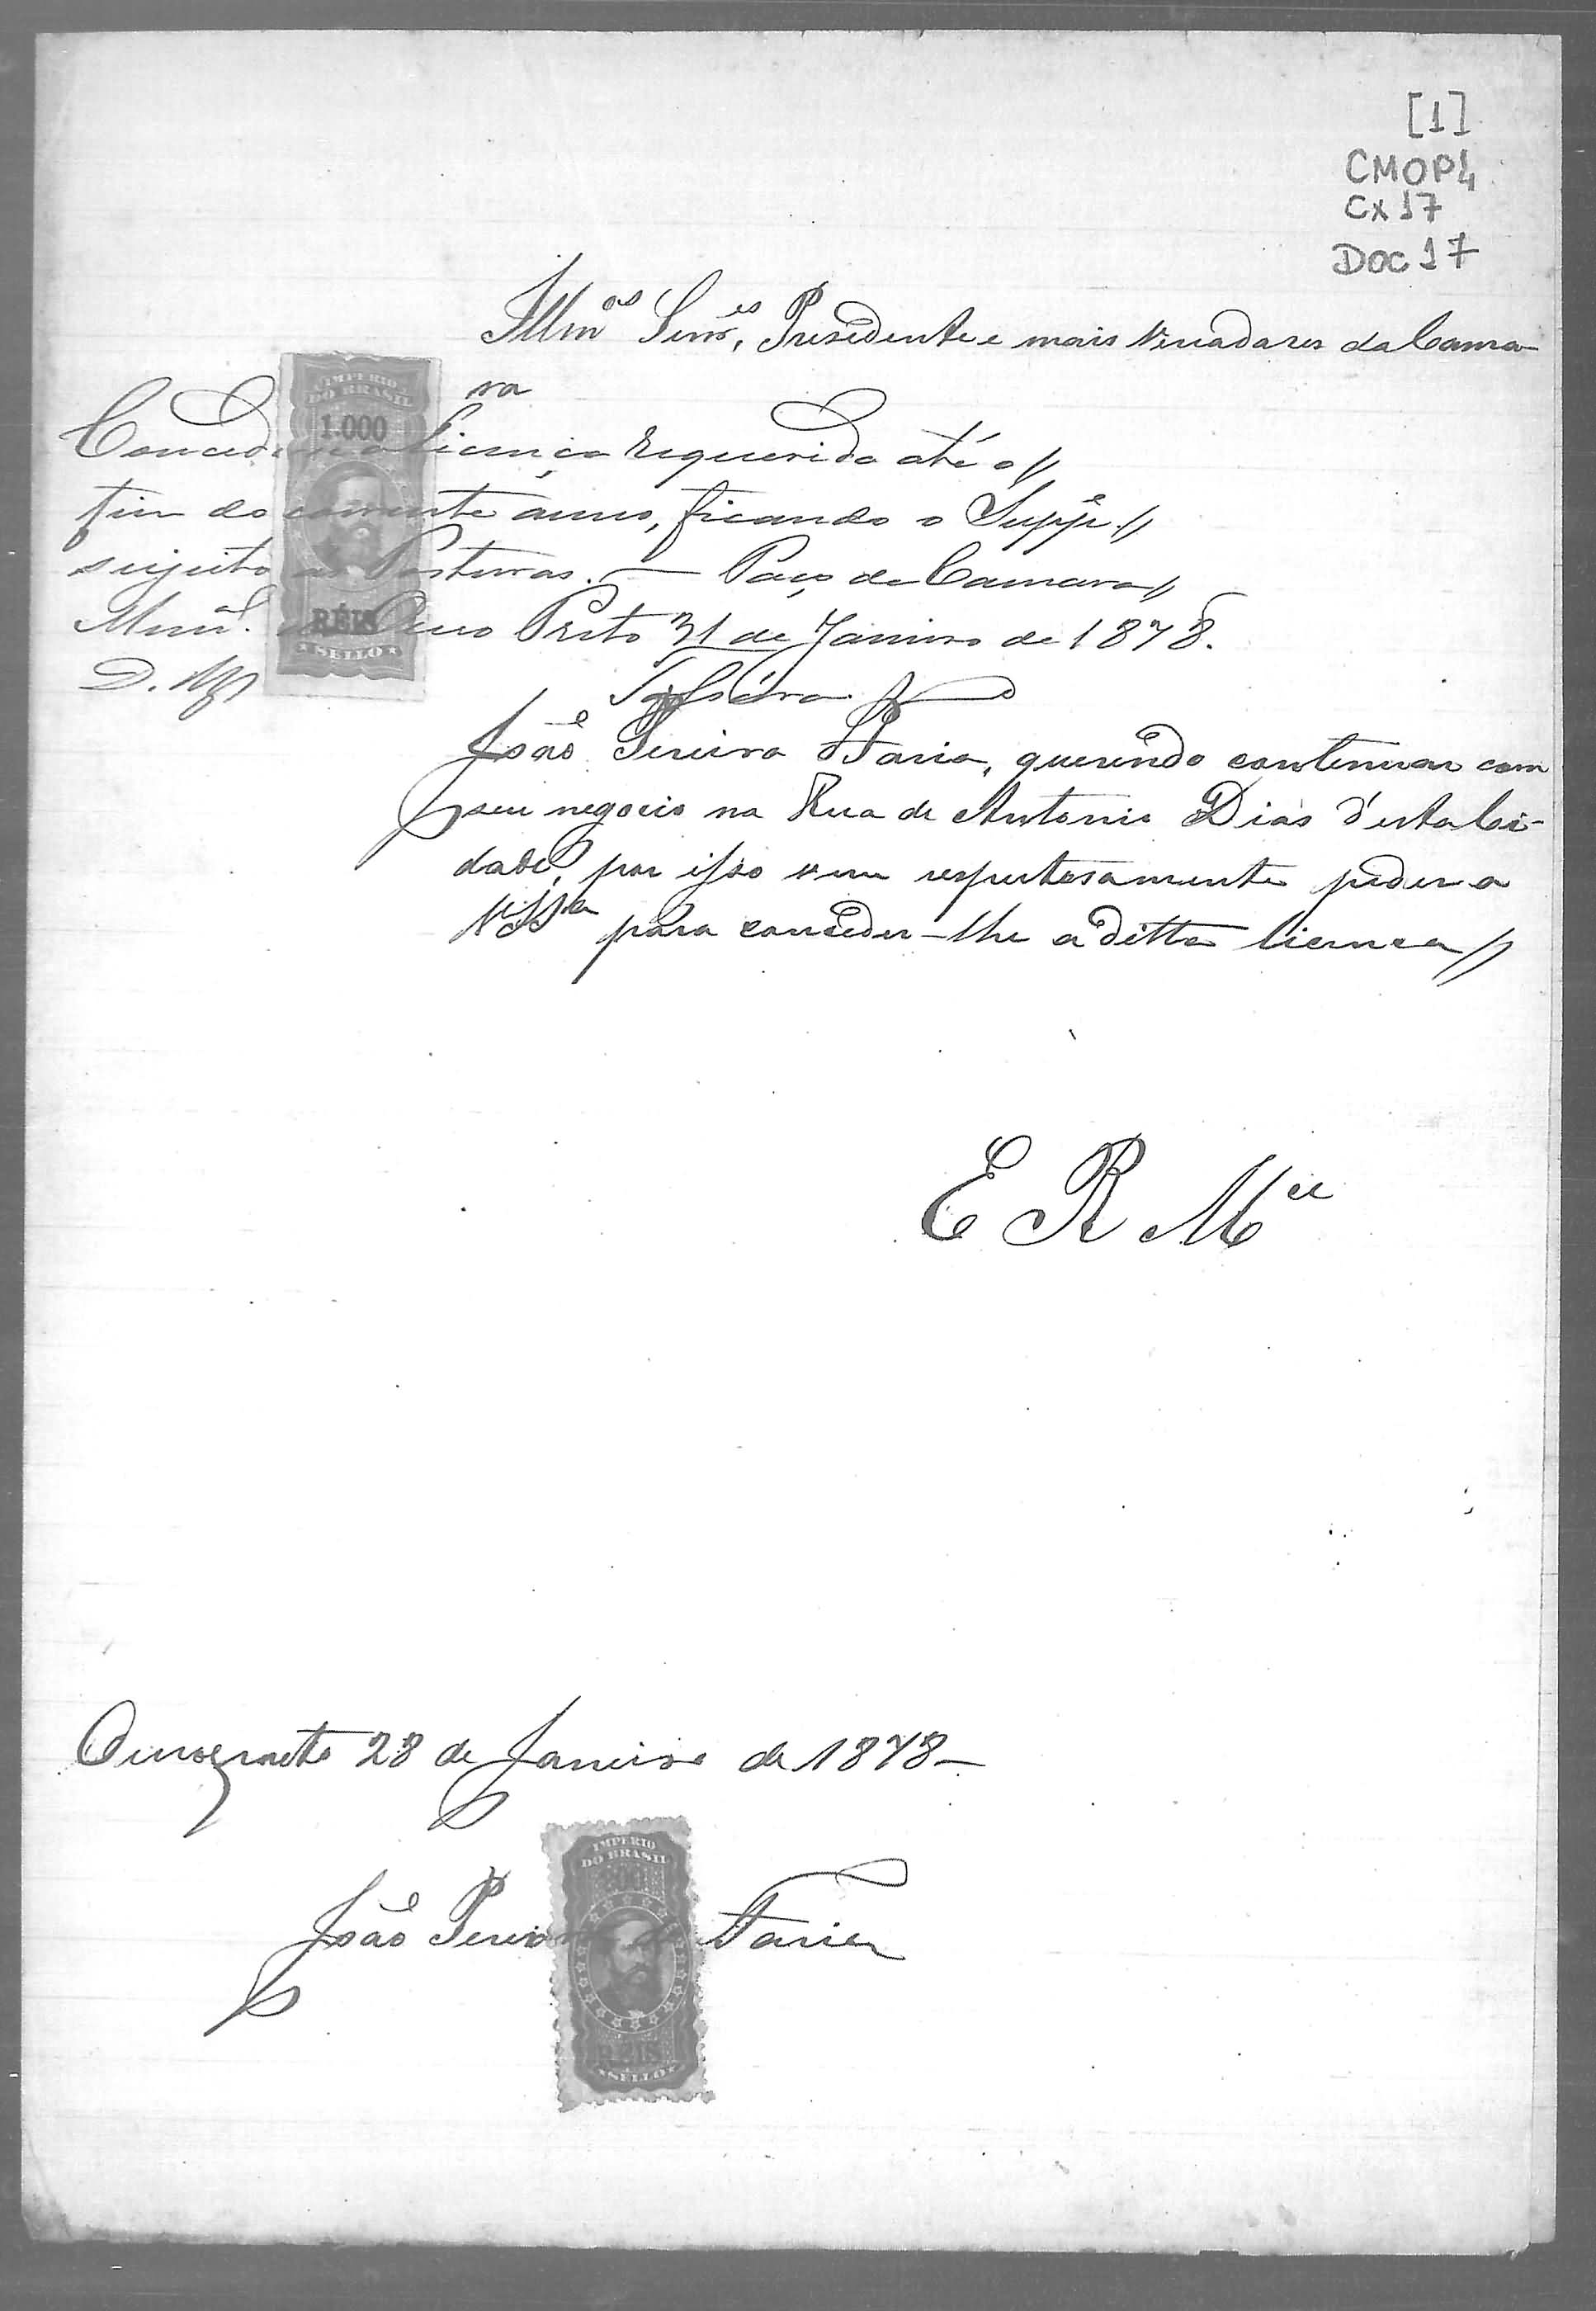 [1]
CMOP4
CX 17
DOC 17
Illm.os Senr.es, Presidente e mais Vereadores da Cama-
ra
IMPERIO
DO BRASIL
1.000
RÉIS
SELLO
Concede-se a licença requerida até o
fim do corrente anno, ficando o Supp.e
sujeito as Posturas. — Paço da Camara
Mun.al de Ouro Preto 31 de Janeiro de 1878.
João Pereira Faria, querendo continuar com
seu negocio na Rua de Antonio Dias d'esta Ci-
dade, por isso vem respeitosamente pedir a
V.S.ia para conceder-lhe a ditta licença
E R M.ce
Ouro preto 28 de Janeiro de 1878 —
IMPERIO
DO BRASIL
200
RÉIS
SELLO
João Pereira de Faria